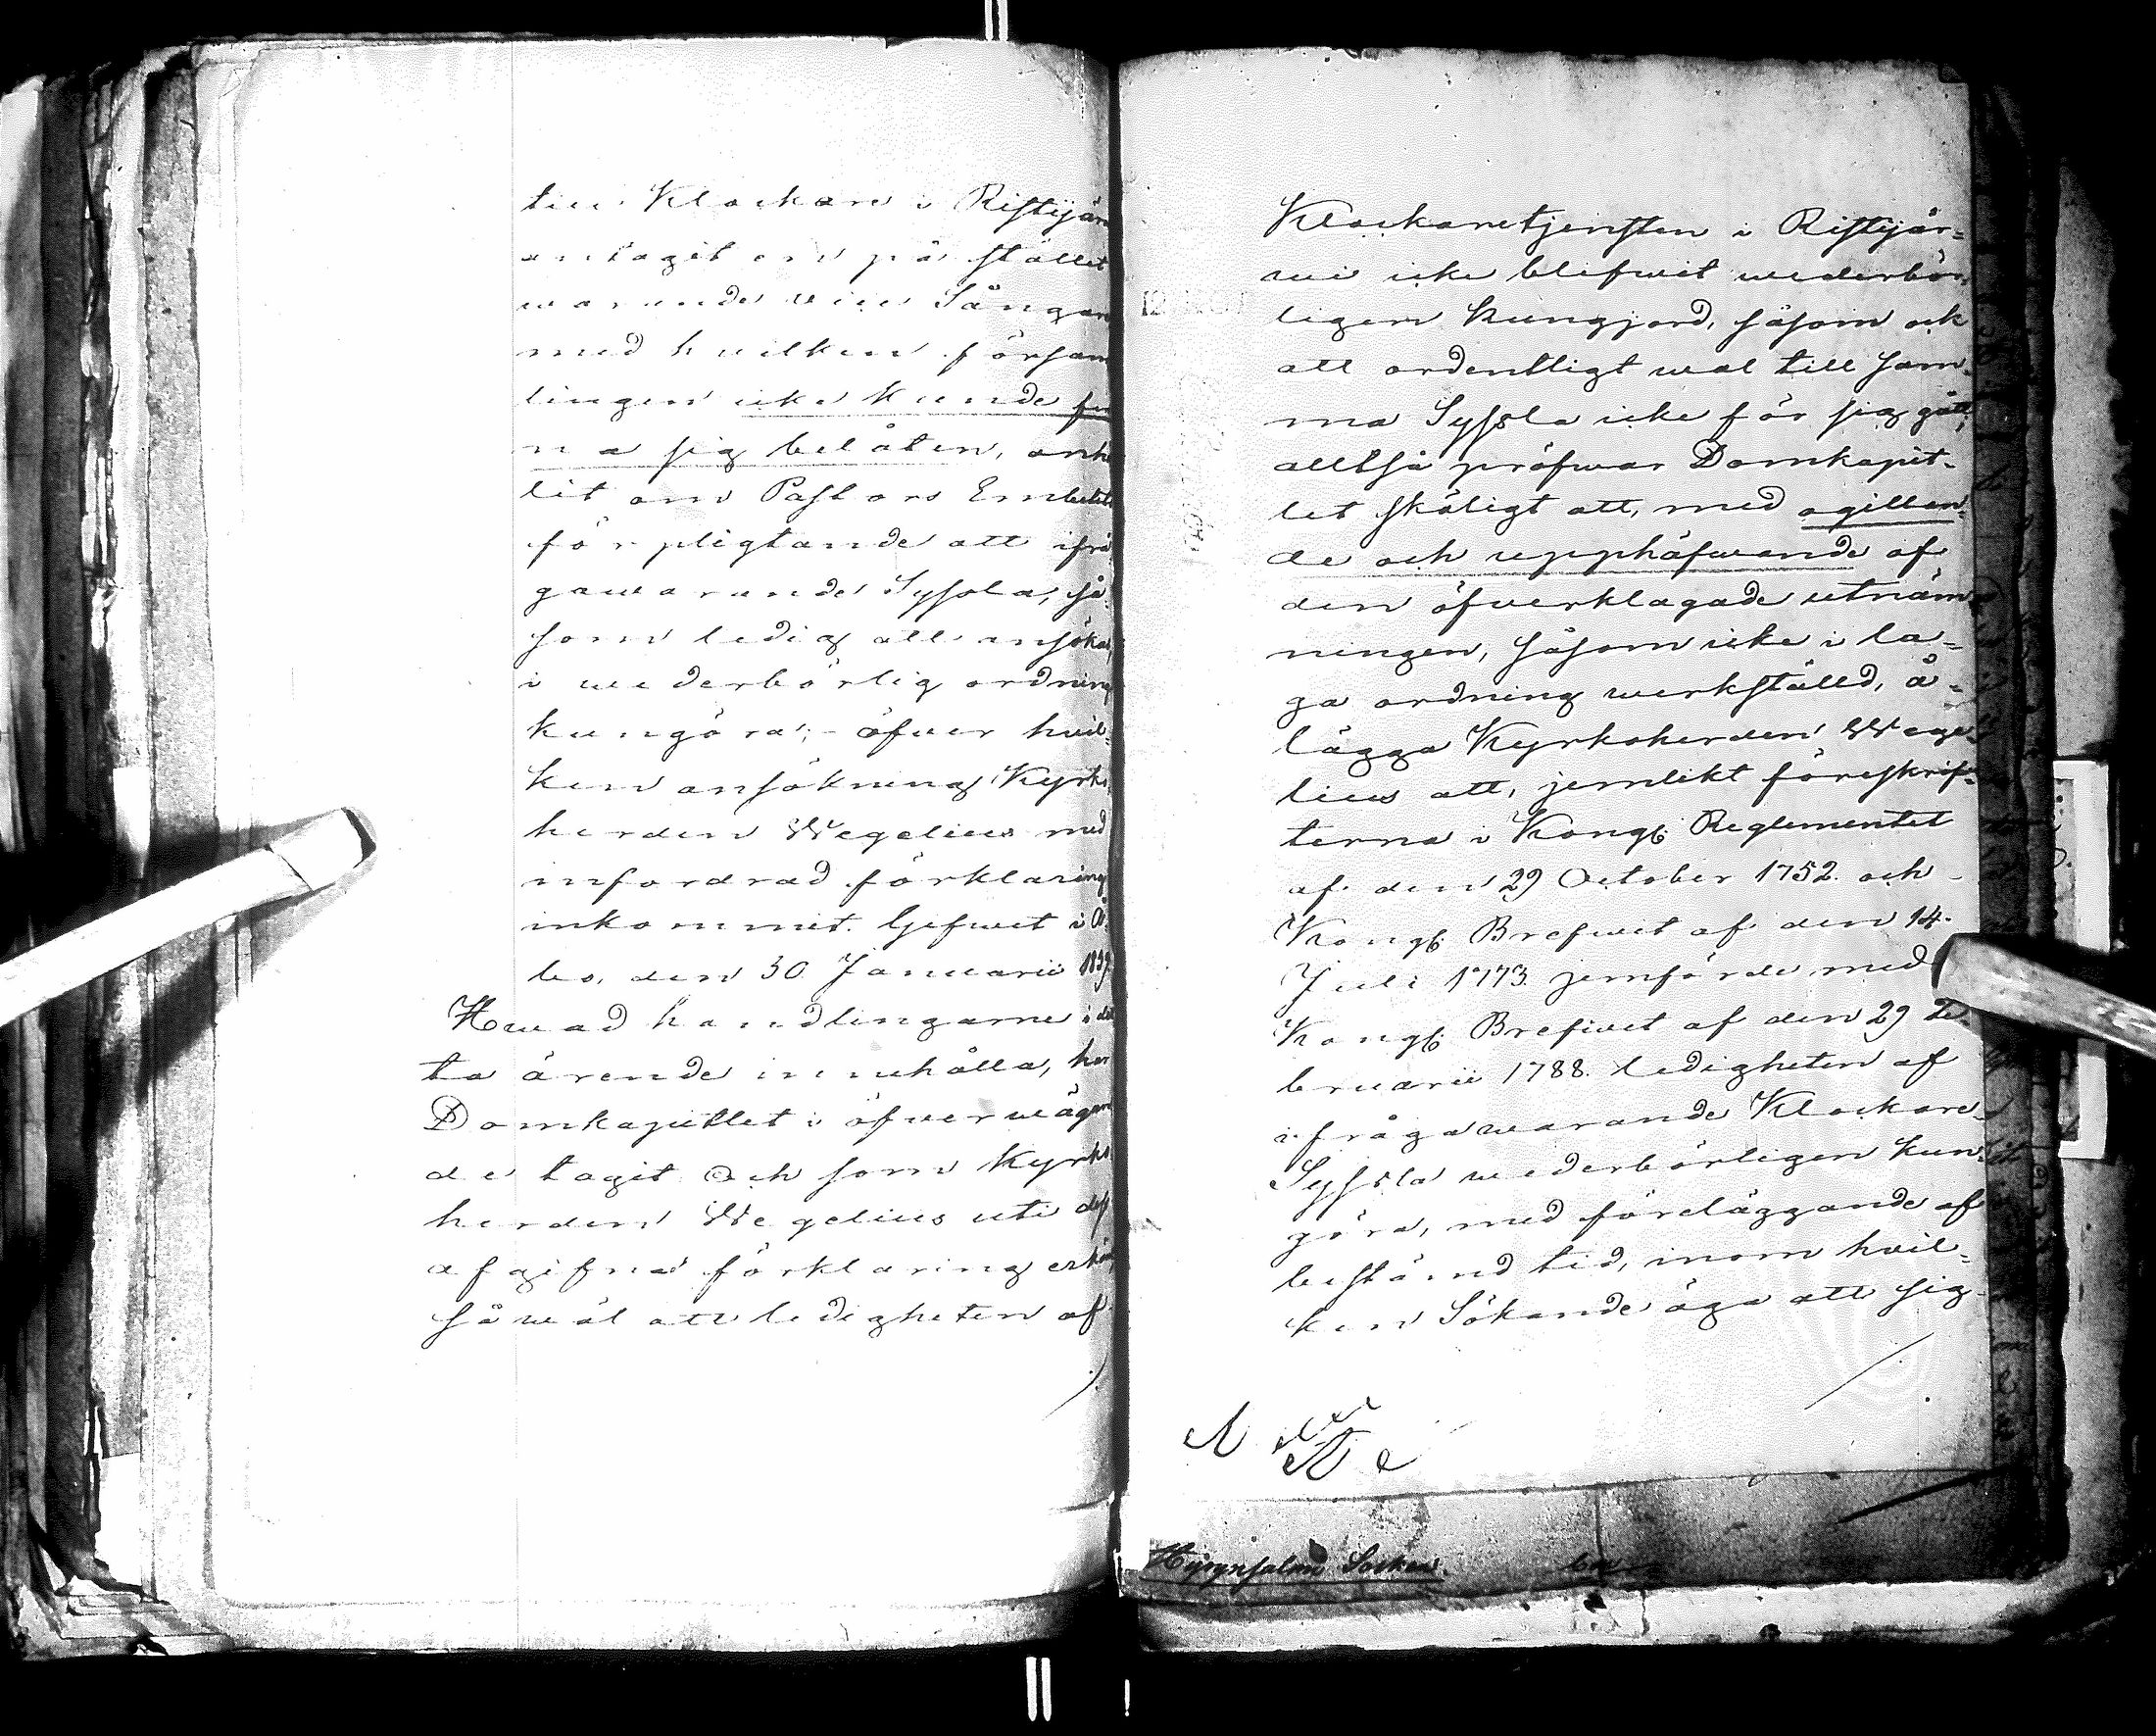 till Klockare i Ristijär
antagit en på stället
warande till Sångare
med hwilken försam
lingen icke kunde fin
na sig belåten, anhål
lit om Pastors Embetets
förpligtande att ifrå
gawarande Syssla, så-
som ledig att ansökas,
i wederbörlig ordning
kungöra; - öfver hwil-
ken ansökning Kyrko
herden Wegelius med
infordrad förklaring
inkommit. Gifwet i Å-
bo, den 30 Januarii 1839.
Hwad handlingarne i det
ta ärende innehålla, har
Domkapitlet i öfverwägan
de tagit Och som Kyrko
herden Wegelius uti dess
afgifna förklaring erkänt
såwäl att ledigheten af
Klockaretjensten i Ristijär-
wi icke blifwit wederbör-
ligen kungjord, såsom ock
att ordentligt wal till sam-
ma Syssla icke för sig gått,
alltså pröfwar Domkapit-
let skäligt att, med ogillan-
de och upphäfwande af
den öfverklagade utnäm-
ningen, såsom icke i la-
ga ordning werkställd, å-
lägga Kyrkoherden Wege-
lius att, jemlikt föreskrif-
terna i Kongl. Reglementet
af den 29 October 1752. och
Kongl. Brefwet af den 14.
Juli 1773. jemförde med
Kongl. Brefwet af den 29 Fe-
bruarii 1788. ledigheten af
ifrågawarande Klockare-
Syssla wederbörligen kun-
göra, med föreläggande af
bestämd tid, inom hwil-
ken Sökande äga att sig
Hyrynsalmi Socken.